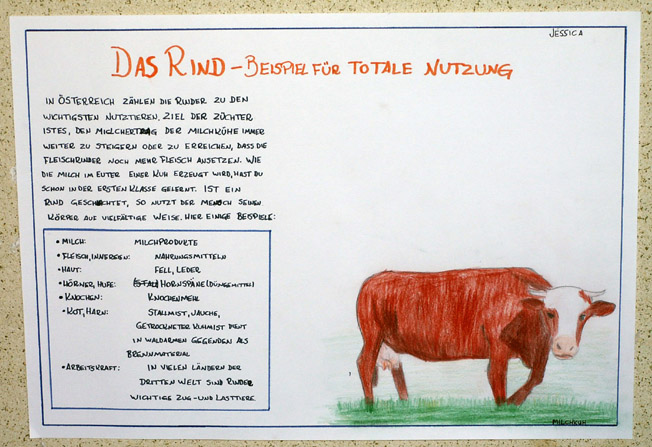 JESSICA
DAS RIND – BEISPIEL FÜR TOTALE NUTZUNG
IN ÖSTERREICH ZÄHLEN DIE RINDER ZU DEN
WICHTIGSTEN NUTZTIEREN. ZIEL DER ZÜCHTER
IST ES, DEN MILCHERTRAG DER MILCHKÜHE IMMER
WEITER ZU STEIGERN ODER ZU ERREICHEN, DASS DIE
FLEISCHRINDER NOCH MEHR FLEISCH ANSETZEN. WIE
DIE MILCH IM EUTER EINER KUH ERZEUGT WIRD, HAST DU
SCHON IN DER ERSTEN KLASSE GELERNT. IST EIN
RIND GESCHLACHTET, SO NUTZT DER MENSCH SEINEN
KÖRPER AUF VIELFÄLTIGE WEISE. HIER EINIGE BEISPIELE:
• MILCH: MILCHPRODUKTE
• FLEISCH, INNEREIEN: NAHRUNGSMITTELN
• HAUT: FELL, LEDER
• HÖRNER, HUFE: HORNSPÄNE (DÜNGEMITTEL)
• KNOCHEN: KNOCHENMEHL
• KOT, HARN: STALLMIST, JAUCHE,
GETROCKNETER KUHMIST DIENT
IN WALDARMEN GEGENDEN ALS
BRENNMATERIAL
• ARBEITSKRAFT: IN VIELEN LÄNDERN DER
DRITTEN WELT SIND RINDER
WICHTIGE ZUG- UND LASTTIERE
MILCHKUH